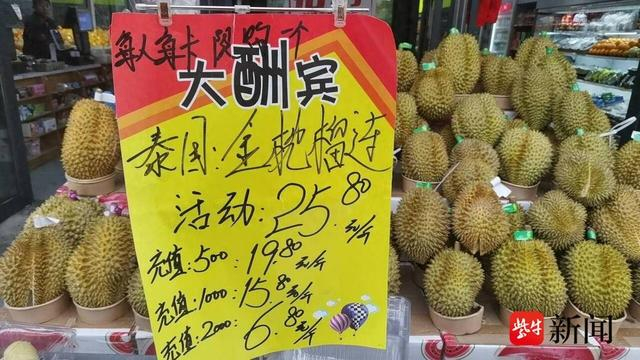 每人每卡限购一个
大酬宾
泰国:金枕榴连
活动:25.80元/斤
充值:500 19.80元/斤
充值:1000 15.80元/斤
充值:2000 6.80元/斤
紫牛新闻